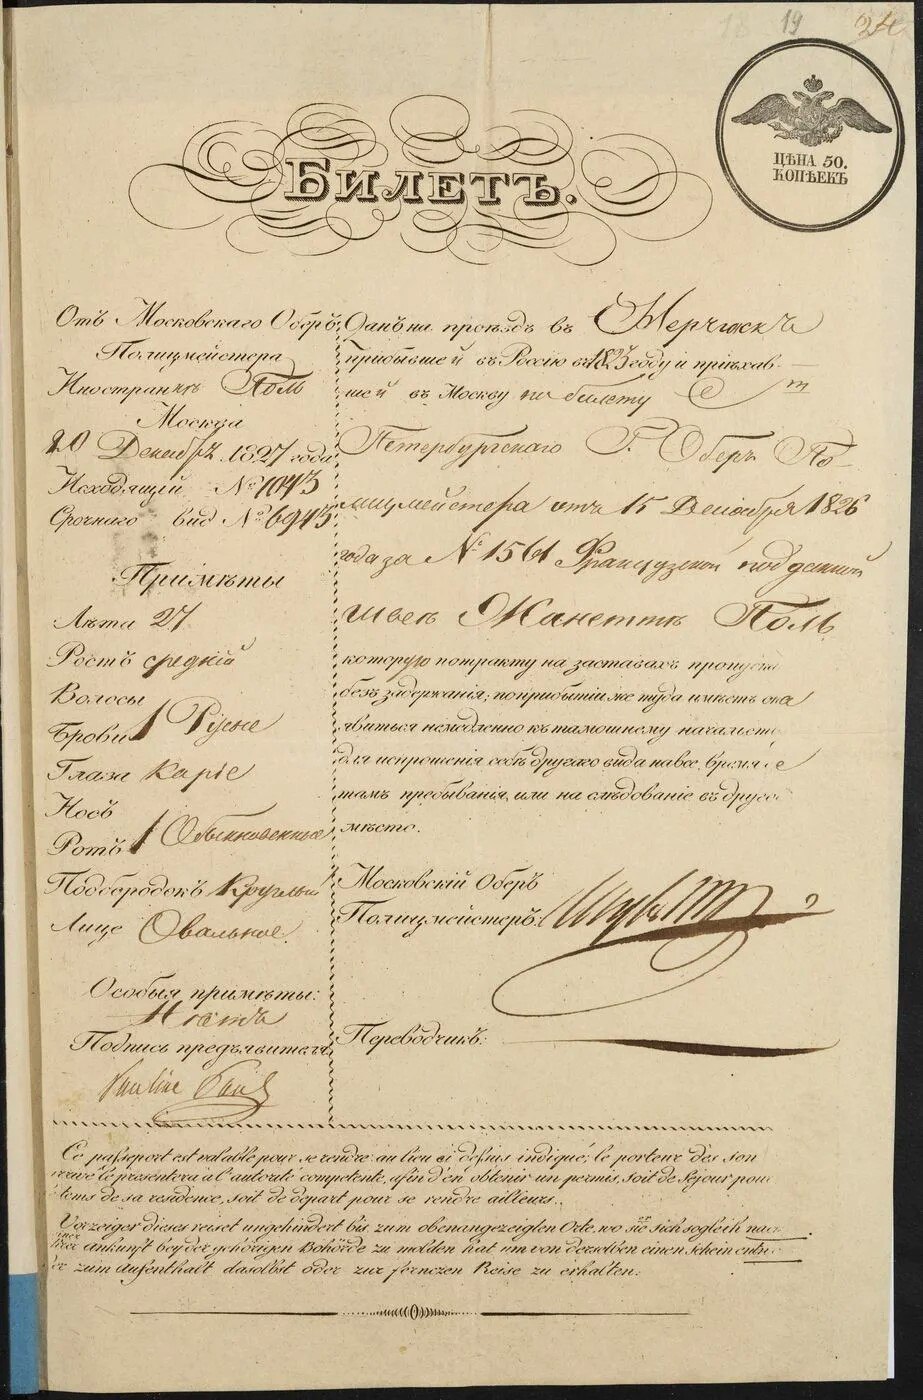 19
24
ЦѢНА 50.
КОПѢЕКЪ
БИЛЕТЪ.
Отъ Московскаго Оберъ
Полицмейстера
Иностранкѣ Поль
Москва
20 Декабрѣ 1827 года
Исходящій № 1043
Срочнаго вид № 6945
Примѣты
Лѣта 27
Ростъ средній
Волосы
Брови Русые
Глаза Каріе
Носъ
Ротъ Обыкновенные
Подбородокъ Круглый
Лице Овальное.
Особыя примѣты:
Нѣтъ
Подпись предъявителя
Pauline Paul
Данъ на проѣздъ въ Нерчинскъ
прибывшей въ Россію въ 1823 году и пріѣхав
шей въ Москву по билету С т
Петербургскаго Г. Оберъ По
лицмейстера отъ 15 Декабря 1826
года за № 1561 Французской подданной
швеѣ Жанеттѣ Поль
которую потракту на заставахъ пропуска
безъ задержанія; поприбытіи же туда имѣетъ она
явиться немедленно къ тамошнему начальств
для испрошенія себѣ другаго вида на все время е
тамъ пребыванія, или на слѣдованіе въ друго
мѣсто.
Московскій Оберъ
Полицмейстеръ:
Переводчикъ:
Ce passeport est valable pour se rendre au lieu ci dessus indiqué; le porteur dès son
arrivé le presentera à l'autorité competente, afin d'en obtenir un permis, soit de Séjour pour
tems de sa residence, soit de depart pour se rendre ailleurs.
Vorzeiger dieses reiset ungehindert bis zum obenangezeigten Orte, wo sie sich sogleich nach
ihrer Ankunft bey der gehörigen Behörde zu melden hat um von derselben einen Schein entwe
der zum Aufenthalt daselbst oder zur fernern Reise zu erhalten.